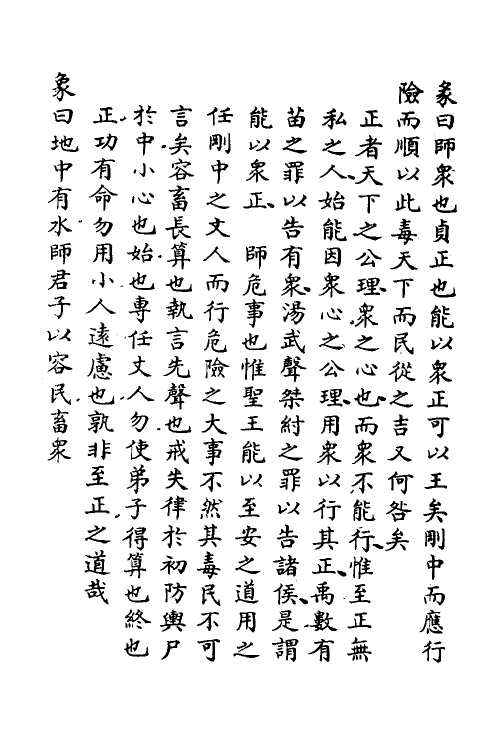 彖曰師衆也貞正也能以衆正可以王矣剛中而應行
險而順以此毒天下而民從之吉又何咎矣
正者天下之公理衆之心也而衆不能行惟至正無
私之人始能因衆心之公理用衆以行其正禹數有
苗之罪以告有衆湯武聲桀紂之罪以告諸侯是謂
能以衆正　師危事也惟聖王能以至安之道用之
任剛中之丈人而行危險之大事不然其毒民不可
言矣容畜長算也執言先聲也戒失律於初防輿尸
於中小心也始也專任丈人勿使弟子得算也終也
正功有命勿用小人遠慮也孰非至正之道哉
象曰地中有水師君子以容民畜衆